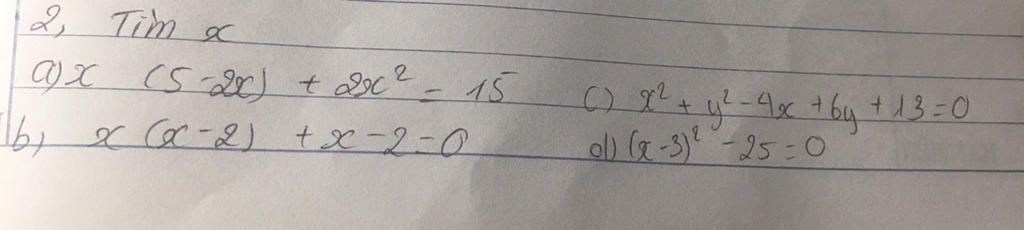 2, Tìm x
a) x (5-2x) + 2x² = 15
b) x (x-2) + x-2=0
c) x² + y² - 4x + 6y + 13 = 0
d) (x-3)² - 25 = 0